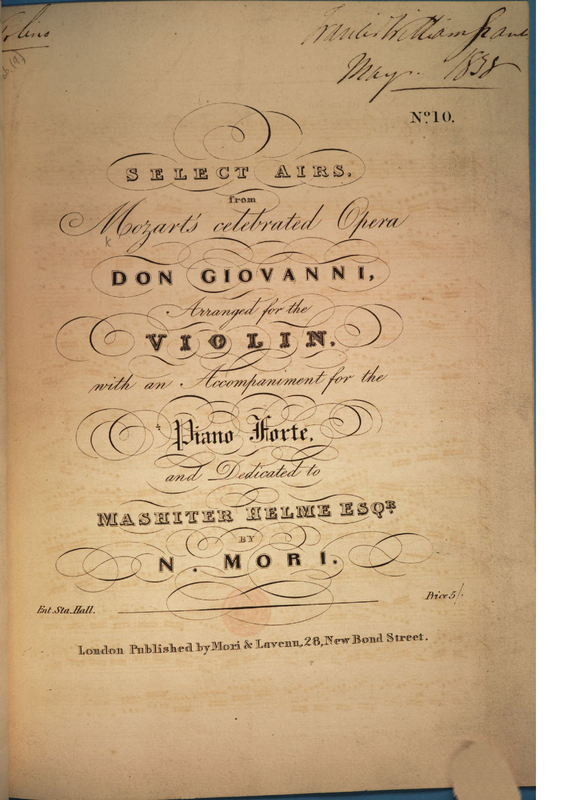 William
May. 1838
No. 10.
SELECT AIRS,
from
Mozart's celebrated Opera
DON GIOVANNI,
Arranged for the
VIOLIN,
with an Accompaniment for the
Piano Forte,
and Dedicated to
MASHITER HELME ESQR
BY
N. MORI.
Ent. Sta. Hall.
Price 5/.
London Published by Mori & Lavenu, 28, New Bond Street.